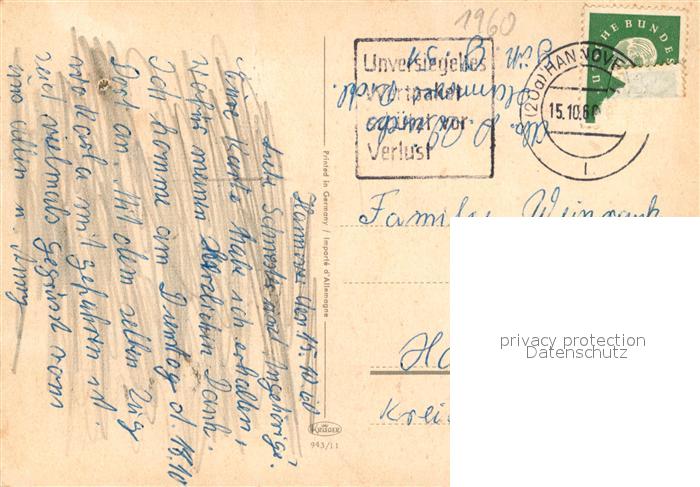 1960
Unversiegeltes
Wertpaket
schützt vor
Verlust
HE BUNDES
(20a) HANNOVER
15.10.60
1
Familie Weinrank
Kreis
Printed in Germany / Importé d'Allemagne
KRÜGER
943/11
Hannover den 15.10.60
Liebe Schwester und Angehörige.
Eine Karte habe ich erhalten,
wofür meinen herzlichen Dank.
Ich komme am Dienstag d. 18.10
Dort an. Mit dem selben Zug
wie Karla mit gefahren ist.
Seid vielmals gegrüsst von
uns allen u. Anny
privacy protection
Datenschutz